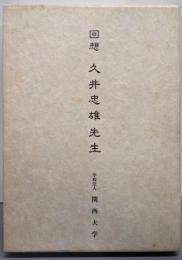 回想 久井忠雄先生
学校法人 関西大学